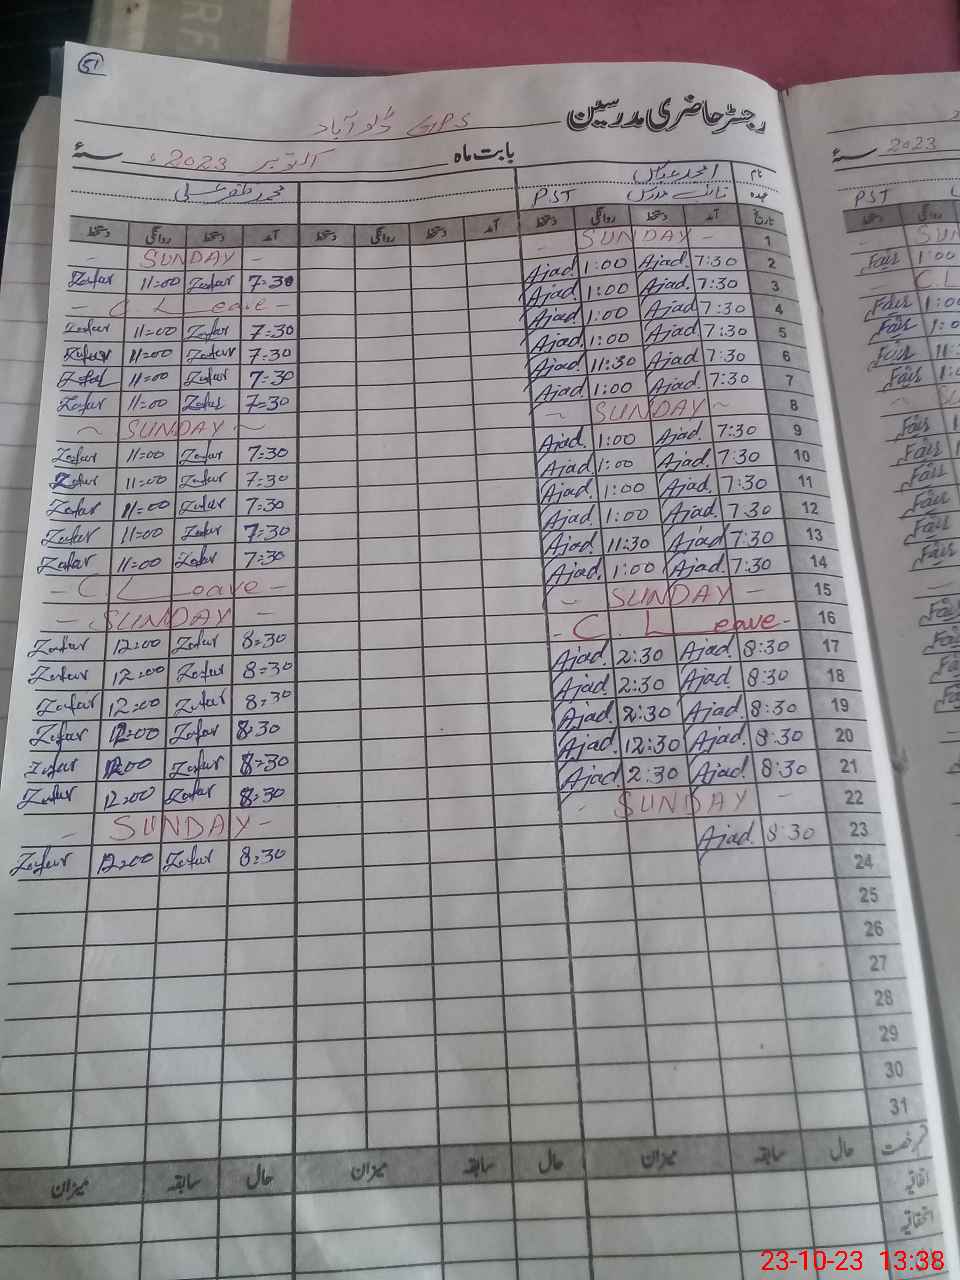 51
رجسٹر حاضری مدرسین
GPS آباد
بابت ماہ اکتوبر 2023ء سنہ 2023
نام
عہدہ PST PST
تاریخ آمد دستخط روانگی دستخط آمد دستخط روانگی دستخط آمد دستخط روانگی دستخط
- SUNDAY - - SUNDAY - 1
Zafar 11=00 Zafar 7=30 Ajad 1:00 Ajad 7:30 2 Fair 1:00
- C Leave - Ajad 1:00 Ajad 7:30 3
Zafar 11=00 Zafar 7=30 Ajad 1:00 Ajad 7:30 4 Fair
Zafar 11=00 Zafar 7=30 Ajad 1:00 Ajad 7:30 5 Fair
Zafar 11=00 Zafar 7=30 Ajad 11:30 Ajad 7:30 6 Fair
Zafar 11=00 Zafar 7=30 Ajad 1:00 Ajad 7:30 7 Fair
~ SUNDAY ~ ~ SUNDAY ~ 8
Zafar 11=00 Zafar 7=30 Ajad 1:00 Ajad 7:30 9 Fair
Zafar 11=00 Zafar 7=30 Ajad 1:00 Ajad 7:30 10 Fair
Zafar 11=00 Zafar 7=30 Ajad 1:00 Ajad 7:30 11 Fair
Zafar 11=00 Zafar 7=30 Ajad 1:00 Ajad 7:30 12 Fair
Zafar 11=00 Zafar 7=30 Ajad 11:30 Ajad 7:30 13 Fair
- C Leave - Ajad 1:00 Ajad 7:30 14 Fair
- SUNDAY - - SUNDAY - 15
Zafar 12=00 Zafar 8=30 - C. Leave - 16
Zafar 12=00 Zafar 8=30 Ajad 2:30 Ajad 8:30 17
Zafar 12=00 Zafar 8=30 Ajad 2:30 Ajad 8:30 18
Zafar 12=00 Zafar 8=30 Ajad 2:30 Ajad 8:30 19
Zafar 12=00 Zafar 8=30 Ajad 12:30 Ajad 8:30 20
Zafar 12=00 Zafar 8=30 Ajad 2:30 Ajad 8:30 21
- SUNDAY - - SUNDAY - 22
Zafar 12=00 Zafar 8=30 Ajad 8:30 23
24
25
26
27
28
29
30
31
قسم رخصت حال سابقہ میزان حال سابقہ میزان حال سابقہ میزان
اتفاقیہ
استحقاقیہ
23-10-23 13:38